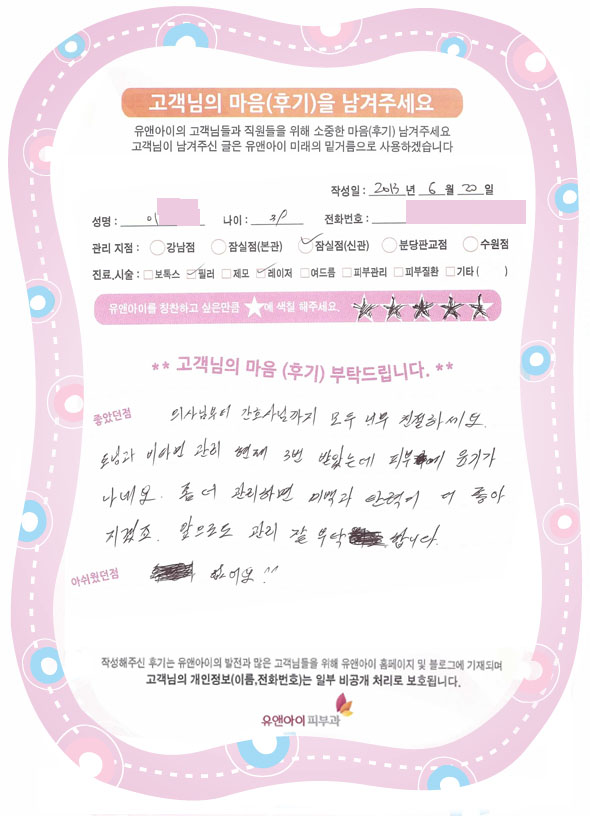 고객님의 마음(후기)을 남겨주세요
유앤아이의 고객님들과 직원들을 위해 소중한 마음(후기) 남겨주세요
고객님이 남겨주신 글은 유앤아이 미래의 밑거름으로 사용하겠습니다
작성일 : 2013 년 6 월 20 일
성명 : 이 나이 : 전화번호 :
관리 지점 : 강남점 잠실점(본관) 잠실점(신관) 분당판교점 수원점
진료,시술 : 보톡스 필러 제모 레이저 여드름 피부관리 피부질환 기타 ( )
유앤아이를 칭찬하고 싶은만큼 ★에 색칠 해주세요.
** 고객님의 마음 (후기) 부탁드립니다. **
좋았던점 의사님부터 간호사님까지 모두 너무 친절하세요.
토닝과 비타민 관리 현재 3번 받았는데 피부에 윤기가
나네요. 좀 더 관리하면 미백과 탄력이 더 좋아
지겠죠. 앞으로도 관리 잘 부탁 합니다.
아쉬웠던점 없어요 ^^
작성해주신 후기는 유앤아이의 발전과 많은 고객님들을 위해 유앤아이 홈페이지 및 블로그에 기재되며
고객님의 개인정보(이름,전화번호)는 일부 비공개 처리로 보호됩니다.
유앤아이 피부과